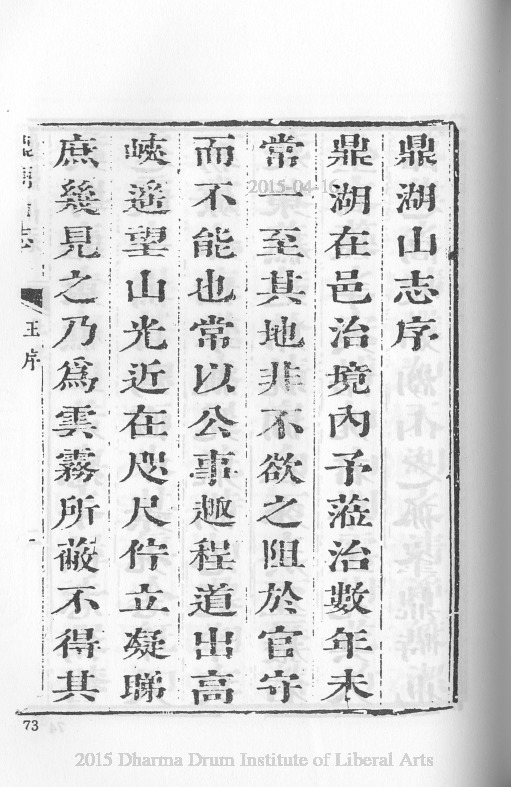 鼎湖山志序
鼎湖在邑治境內予蒞治數年未
常一至其地非不欲之阻於官守
而不能也常以公事趣程道出高
峽遥望山光近在咫尺佇立凝睇
庶幾見之乃爲雲霧所蔽不得其
王序
一
73
2015-04-16
2015 Dharma Drum Institute of Liberal Arts